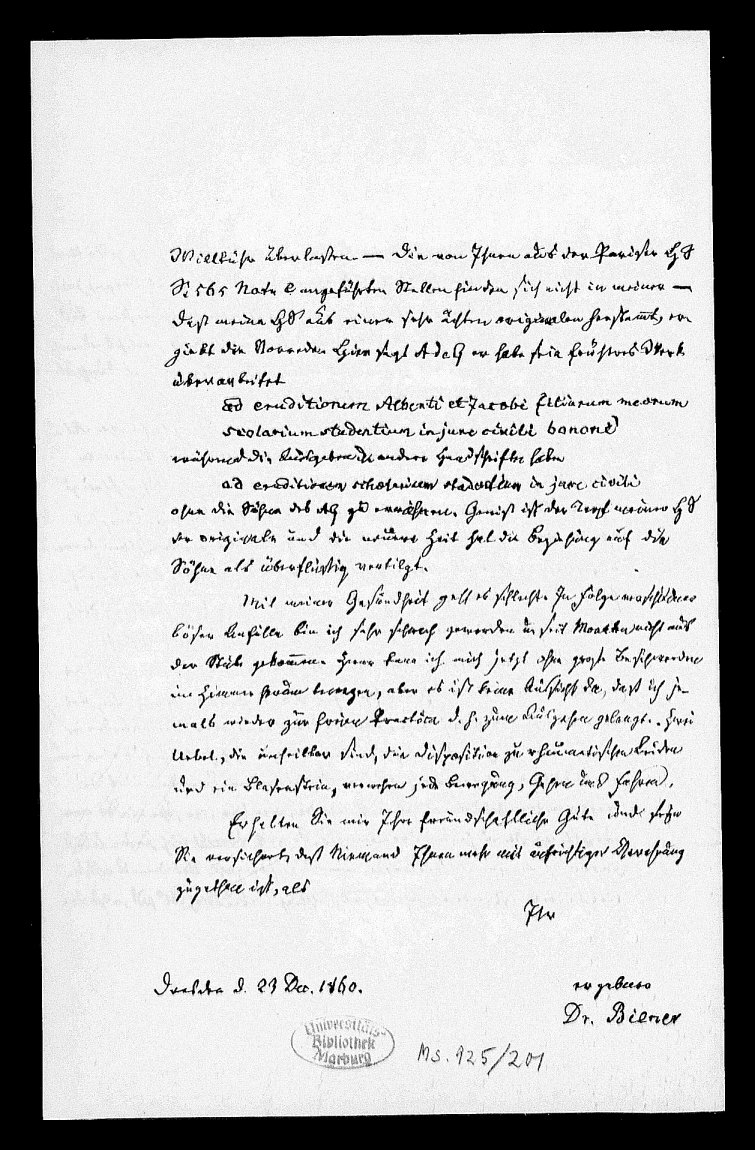 Willkühr überlassen. — Die von Ihnen aus der Pariser HS
S. 565 Note e angeführten Stellen finden sich nicht in meiner —
Daß meine HS aus einer sehr ächten originalen herstammt, er-
giebt die Vorrede. Hier sagt er habe sein früheres Werk
überarbeitet
ad eruditionem Alberti et Jacobi filiorum meorum
scolarium studentium in jure civili bononie
während die Ausgaben u andere Handschriften haben
ad eruditionem scholarium studentium in jure civili
ohne die Söhne des zu erwähnen. Gewiß ist der Text meiner HS
der originale und die neuere Zeit hat die Beziehung auf die
Söhne als überflüssig vertilgt.
Mit meiner Gesundheit geht es schlecht. In Folge verschiedener
böser Anfälle bin ich sehr schwach geworden u seit Monaten nicht aus
der Stube gekommen. kann ich mich jetzt ohne große Beschwerden
im Zimmer bewegen, aber es ist keine Aussicht da, daß ich je-
mals wieder zur freien d. h. zum Ausgehen gelange. Zwei
Uebel, die unheilbar sind, die Disposition zu rheumatischen Leiden
und ein Blasenstein, jede Bewegung, Gehen und Fahren.
Erhalten Sie mir Ihre freundschaftliche Güte und seyn
Sie versichert, daß Niemand Ihnen mehr mit aufrichtiger Verehrung
zugethan ist, als
Ihr
Dresden d. 23 Dec. 1860.
ergebener
Dr. Biener
Universitäts-
Bibliothek
Marburg
Ms. 925/201